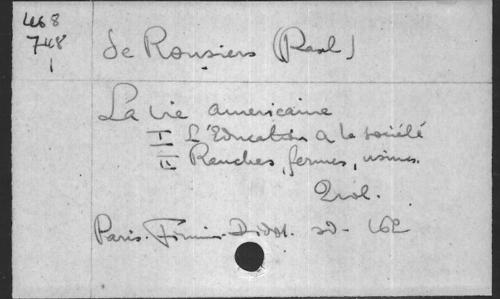 468
748
1
de Rousiers (Paul)
La vie americaine
I L'Education a la société
II Ranches, fermes, usines.
2 vol.
Paris. Firmin-Didot. sd-